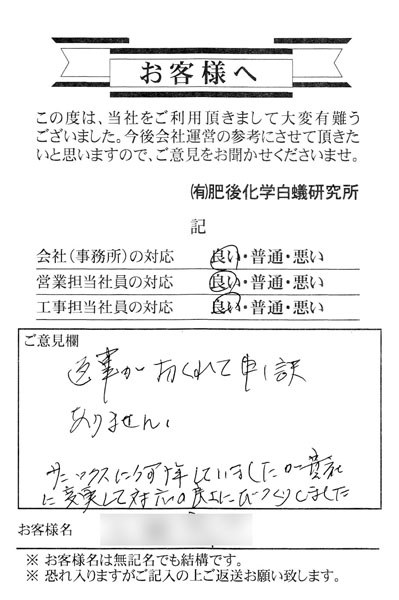 お客様へ
この度は、当社をご利用頂きまして大変有難う
ございました。今後会社運営の参考にさせて頂きた
いと思いますので、ご意見をお聞かせくださいませ。
㈲肥後化学白蟻研究所
記
会社（事務所）の対応 良い・普通・悪い
営業担当社員の対応 良い・普通・悪い
工事担当社員の対応 良い・普通・悪い
ご意見欄
返事がおくれて申し訳
ありません。
サニックスに何年していましたが貴社
に変更して対応の良さにびっくりしました
お客様名
※ お客様名は無記名でも結構です。
※ 恐れ入りますがご記入の上ご返送お願い致します。